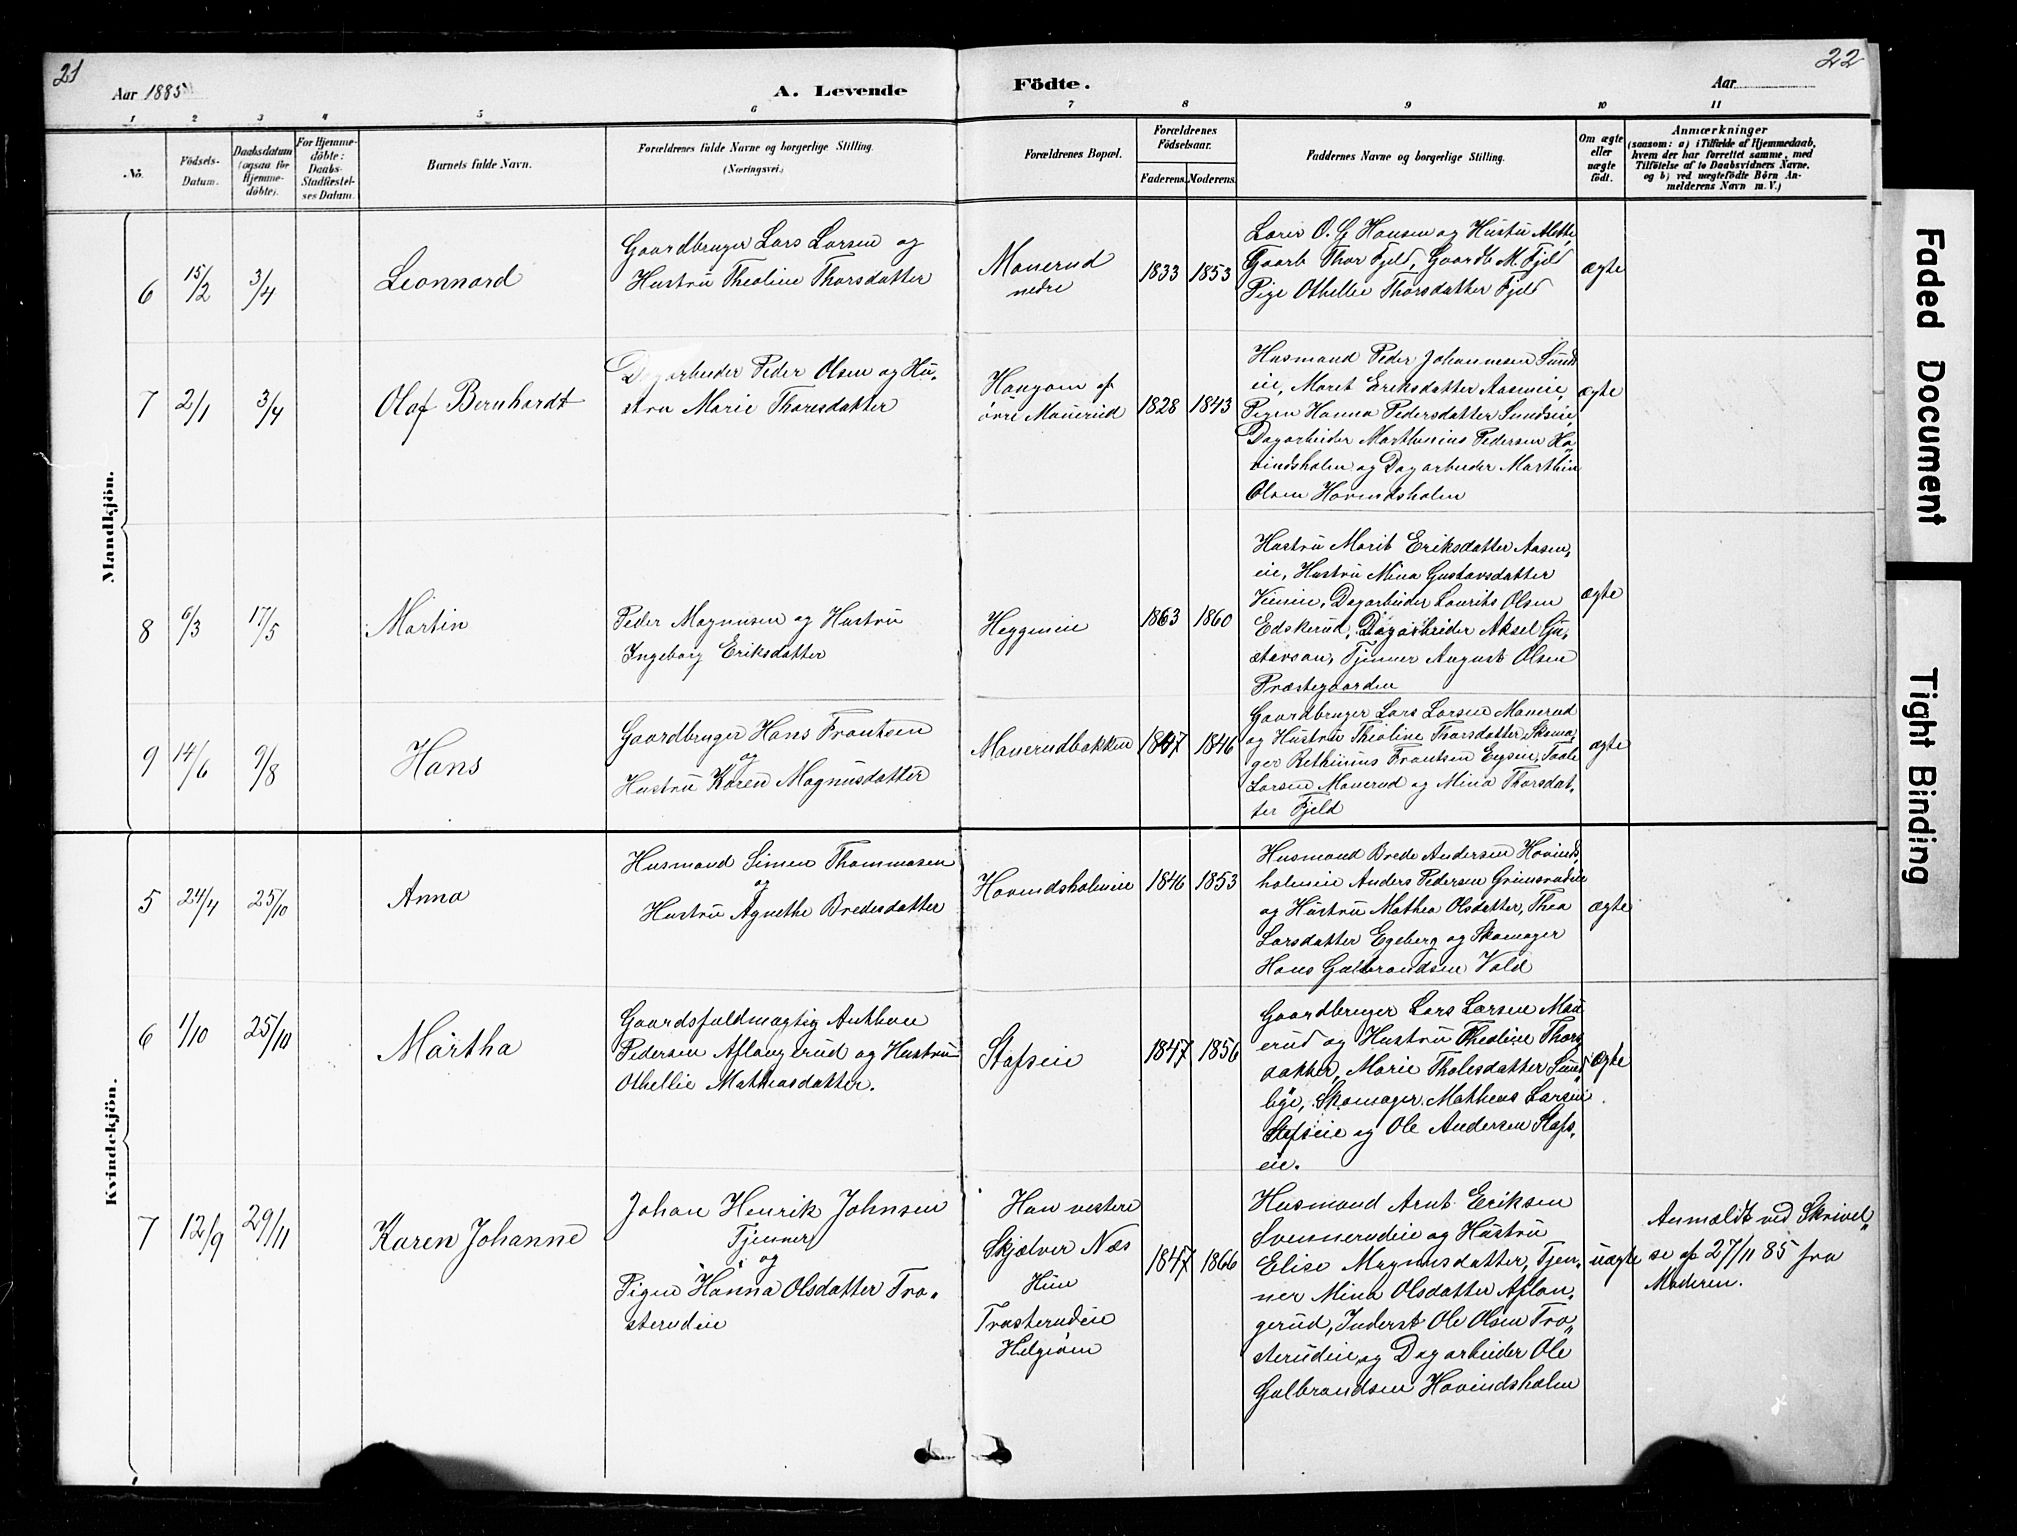 21
22
Aar 1885
A. Levende
Födte.
Aar
1 2 3 4 5 6 7 8 9 10 11
No.
Födsels-
Datum.
Daabsdatum
(ogsaa for
Hjemme-
döbte).
For Hjemme-
döbte:
Daabs-
Stadfæstel-
ses Datum.
Barnets fulde Navn.
Forældrenes fulde Navne og borgerlige Stilling.
(Næringsvei.)
Forældrenes Bopæl.
Forældrenes
Födselsaar.
Faderens. Moderens.
Faddernes Navne og borgerlige Stilling.
Om ægte
eller
uægte
födt.
Anmærkninger
(saasom: a) i Tilfælde af Hjemmedaab,
hvem der har forrettet samme, med
Tilföielse af to Daabsvidners Navne,
og b) ved uægtefödte Börn An-
melderens Navn m. V.)
Mandkjön.
6 15/2 3/4
Leonnard
Gaardbruger Lars Larsen og
Hustru Theoline Thorsdatter
Manerud
nedre
1833 1853
Lærer O. G Hansen og Hustru Alette,
Gaarb Thor Fjeld, Gaardb M. Fjeld
Pige Othellie Thorsdatter Fjeld
ægte
7 2/1 3/4
Olaf Bernhardt
Dagarbeider Peder Olsen og Hu,
stru Marie Tharesdatter
Haugom af
övre Manerud
1828 1843
Husmand Peder Johannesen Sunds
eie, Marit Eriksdatter Aaseneie,
Pigen Hanna Pedersdatter Sundseie,
Dagarbeider Marthinius Pedersen Ho
vindsholm og Dagarbeider Marthin
Olsen Hovindsholm
ægte
8 6/3 17/5
Martin
Peder Magnusen og Hustru
Ingeborg Eriksdatter
Heggneie
1863 1860
Hustru Marit Eriksdatter Aasen,
eie, Hustru Mina Gustavsdatter
Dagarbeider Laurits Olsen
Edskerud, Dagarbeider Aksel Gu,
stavsen, Tjenner August Olsen
Præstegaarden
ægte
9 14/6 9/8
Hans
Gaardbruger Hans Frantsen
og
Hustru Karen Magnusdatter
Manerudbakken
1847 1846
Gaardbruger Lars Larsen Manerud
og Hustru Thioline Thorsdatter, Skoma,
ger Rethinius Frantsen
Larsen Manerud og Mina Thorsdat,
ter Fjeld
ægte
Kvindekjön.
5 24/4 25/10
Anna
Husmand Simen Thommasen
og
Hustru Agnethe Bredesdatter
Hovindsholmeie
1846 1853
Husmand Brede Andersen Hovinds,
holmeie Anders Pedersen Grimsrudeie
og Hustru Mathea Olsdatter, Thea
Larsdatter Egeberg og Skomager
Hans Gulbrandsen Vold
ægte
6 1/10 25/10
Martha
Gaardsfuldmægtig Anthon
Pedersen Aflangerud og Hustru
Othellie Mathiasdatter.
Stafseie
1847 1856
Gaardbruger Lars Larsen Man
erud og Hustru Theoline Thors
datter, Marie Tholesdatter Sund
lige, Skomager Matheus Larsen
Stafseie og Ole Andersen Stafs,
eie.
ægte
7 12/9 29/11
Karen Johanne
Johan Henrik Johnsen
Tjenner
og
Pigen Hanna Olsdatter Tro,,
sterudeie
Han vestere
Skjælver Næs
Hun
Trosterudeie
Helgiöen
1847 1866
Husmand Arnt Eriksen
Svennerudeie og Hustru
Elise Magnusdatter, Tjen,
ner Mina Olsdatter Aflan,
gerud, Inderst Ole Olsen Tro,,
sterudeie, og Dagarbeider Ole
Gulbrandsen Hovindsholm
uægte
Anmældt ved Skrivel,,
se af 27/11 85 fra
Moderen.
Faded Document
Tight Binding